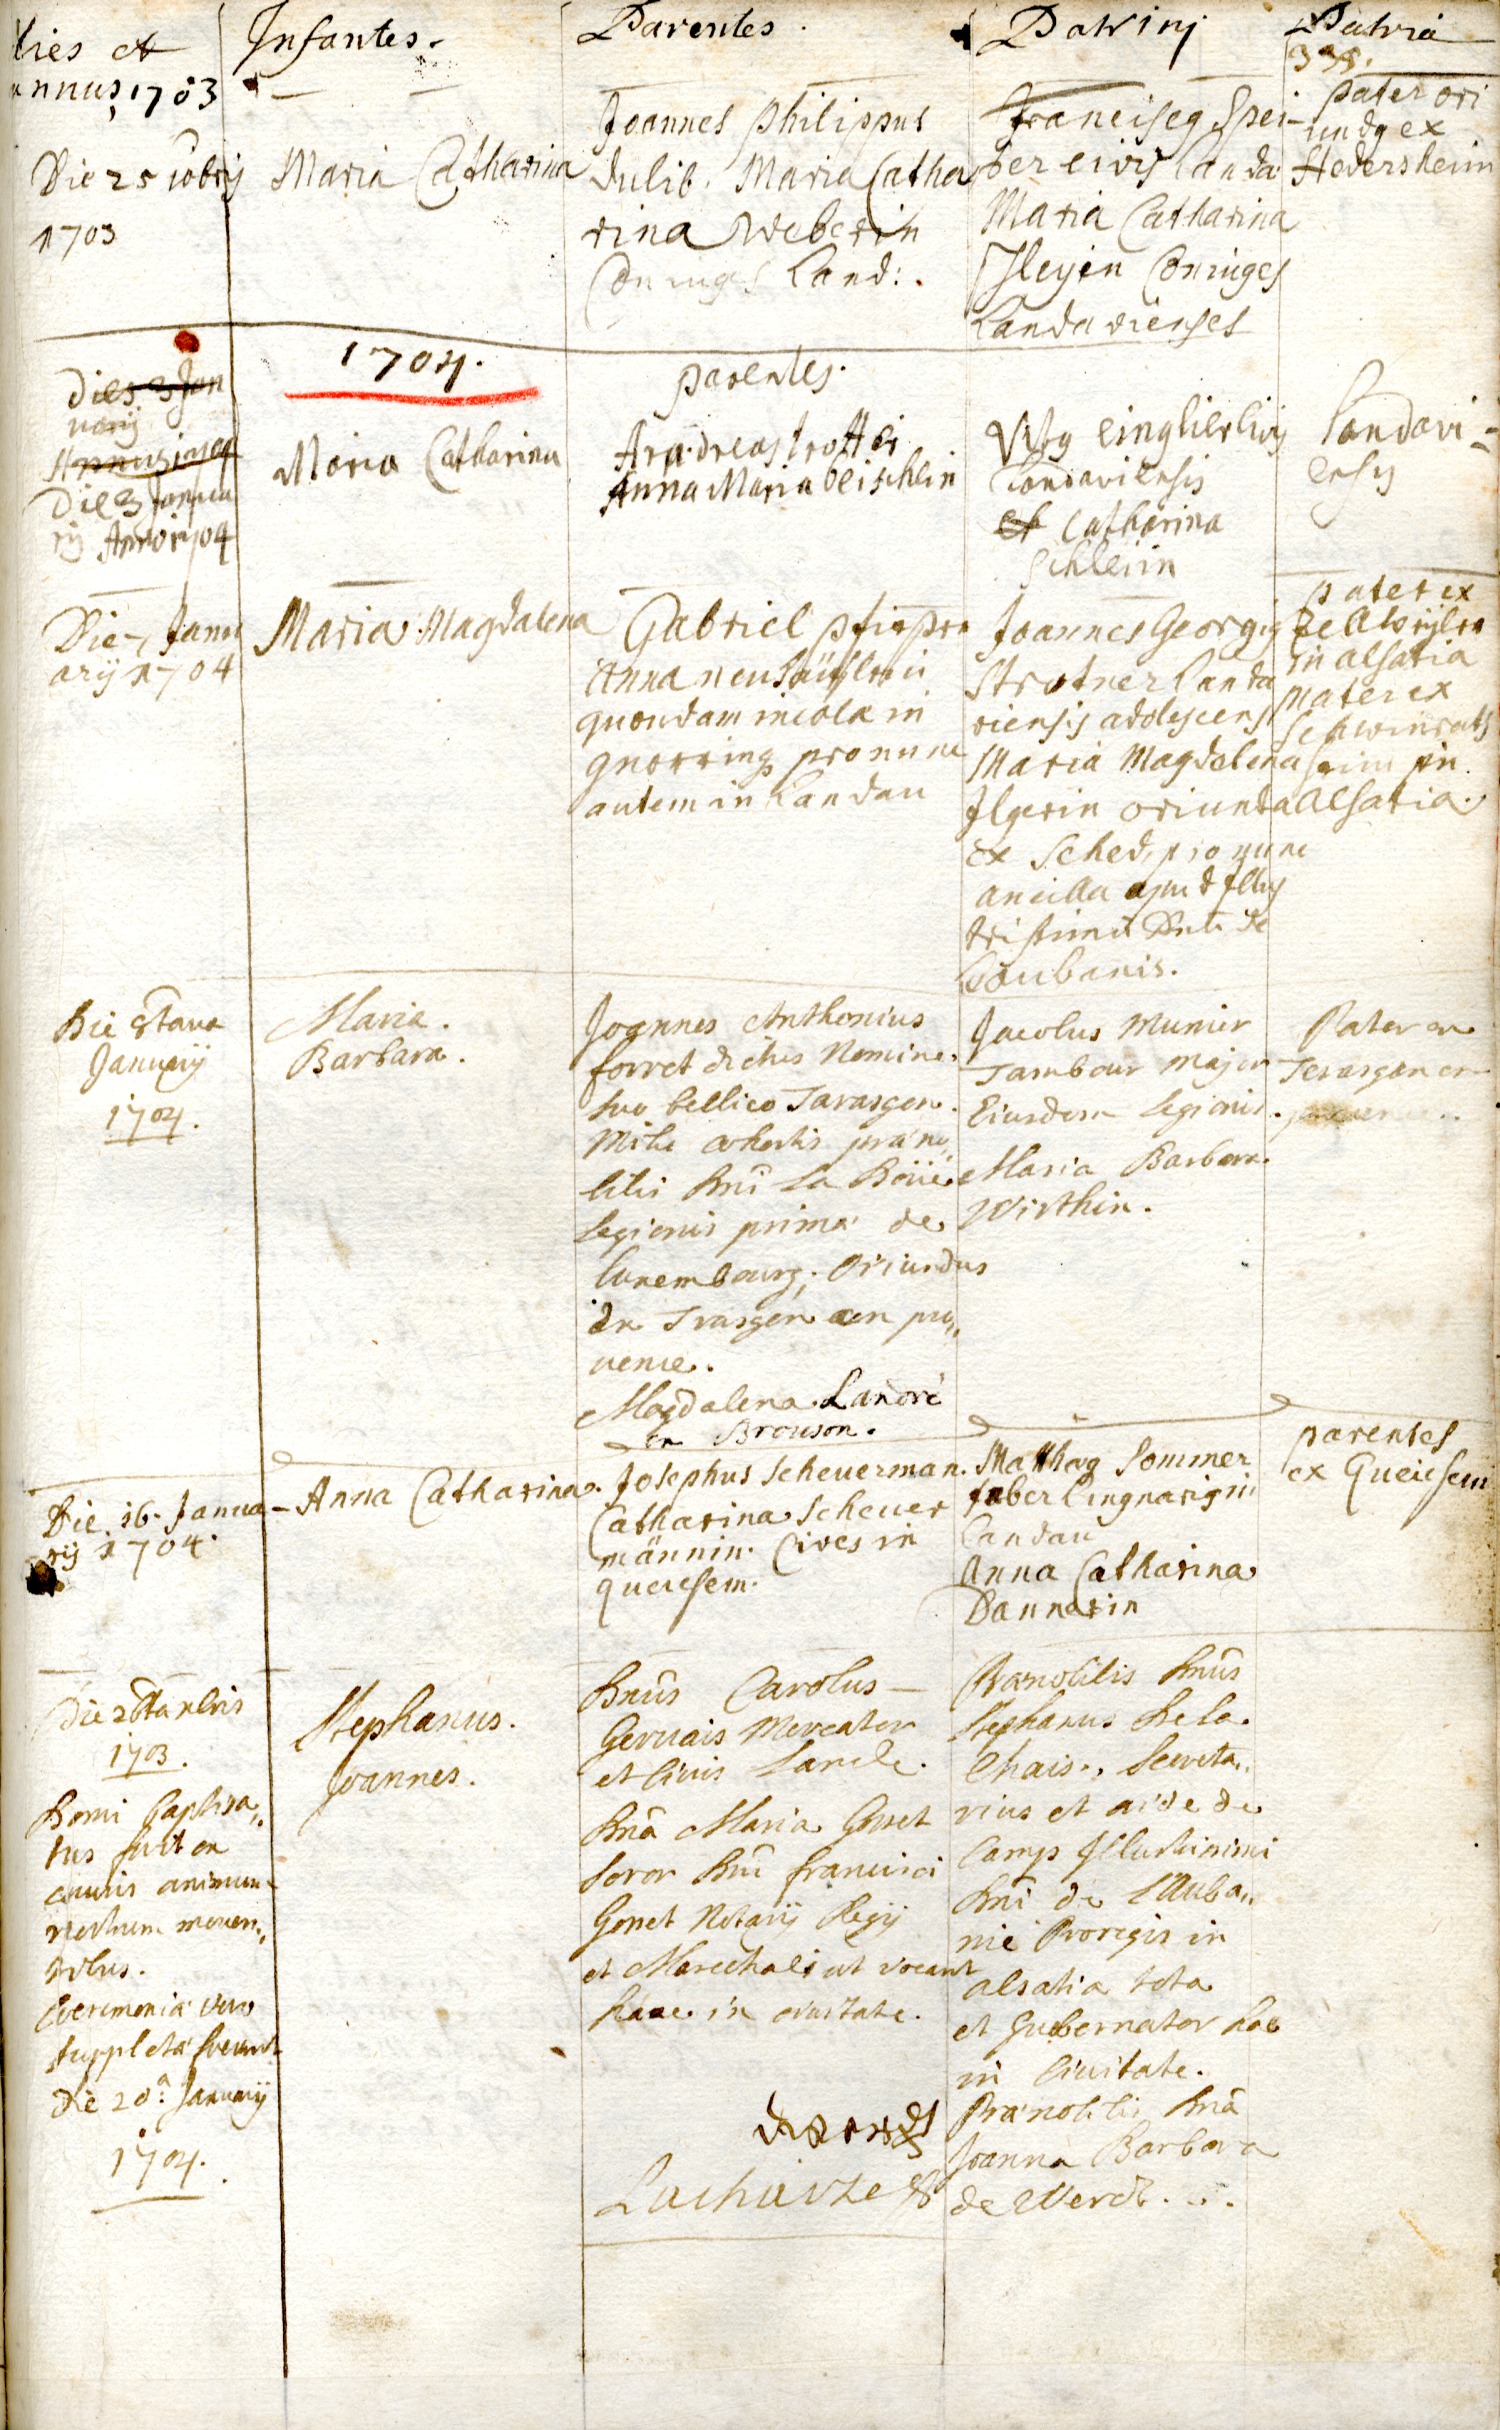 dies et
annus 1703
Infantes.
Parentes.
Patrinj
Patria
335.
Die 25 10bris
1703
Maria Catharina
Joannes Philippus
Dulib. Maria Catha
rina Weberin
Conjuges Land:.
Franciscq Spei-
Maria Catharina
Conjuges
Landavienses
pater ori
undq ex
Hedersheim
1704.
parentes.
Dies 3 Jan
uarij
Die 3 Janua
rij Anno 1704
Maria Catharina
Andreas trotter
Anna Maria bleischlin
Landaviensis
et Catharina
Schleiin
Landavi=
ensis
Die 7 Janu
arij 1704
Maria Magdalena
Gabriel
Anna
quondam incolæ in
pro nunc
autem in Landau
Joannes Georgij
Strotner Landa
viensis adolescens
Maria Magdalena
Ilgerin oriunda
ex Sched, pro nunc
ancilla apud Illus
trissimũ Dnũ de
Loubanis.
pater ex
in alsatia
mater ex
heim in
alsatia.
Die 8tava
Januarij
1704.
Maria.
Barbara.
Joannes Anthonius
forret dictus Nomine
suo bellico Tarasgon.
Miles cohortis præno,,
bilis Dni La Boüe
Legionis primæ de
Luxembourg; Oriundus
de Trasgon en pro,,
vence.
Magdalena Landré
en Brouson.
Jacobus Munier
Tambour Major
Eiusdem Legionis.
Maria Barbara
Wirthin.
Pater en
Terasgon en
provence..
Die 16. Janua-
rij 1704.
Anna Catharina.
Josephus Scheuerman.
Catharina Scheuer
männin. Cives in
queicsem.
Matthæq Sommer
faber lingnarig in
Landau
Anna Catharina
Dannerin
parentes
ex Queicsem
Die 26ta xbris
1703.
Domi baptiza,,
tus fuit ex
causis animum
nostrum moven,,
tibus.
Cæremoniæ vero
suppletæ fuerunt
die 20ª Januarij
1704.
Stephanus.
Joannes.
Dnũs Carolus
Gervais Mercator
et Civis Landæ.
Dnã Maria Gonet
soror Dni francisci
Gonet Notarij Regij
et Marechali ut vocant
hace in civitate.
Lachieze
Prænobilis Dnũs
Stephanus De la
Chais., Secreta,,
rius et aide de
Camps Illustrissimi
Dni de L'Auba,,
nie Proregis in
alsatia tota
et Gubernator hac
in Civitate.
Prænobilis Dnã
Joanna Barbara
de Werdt...